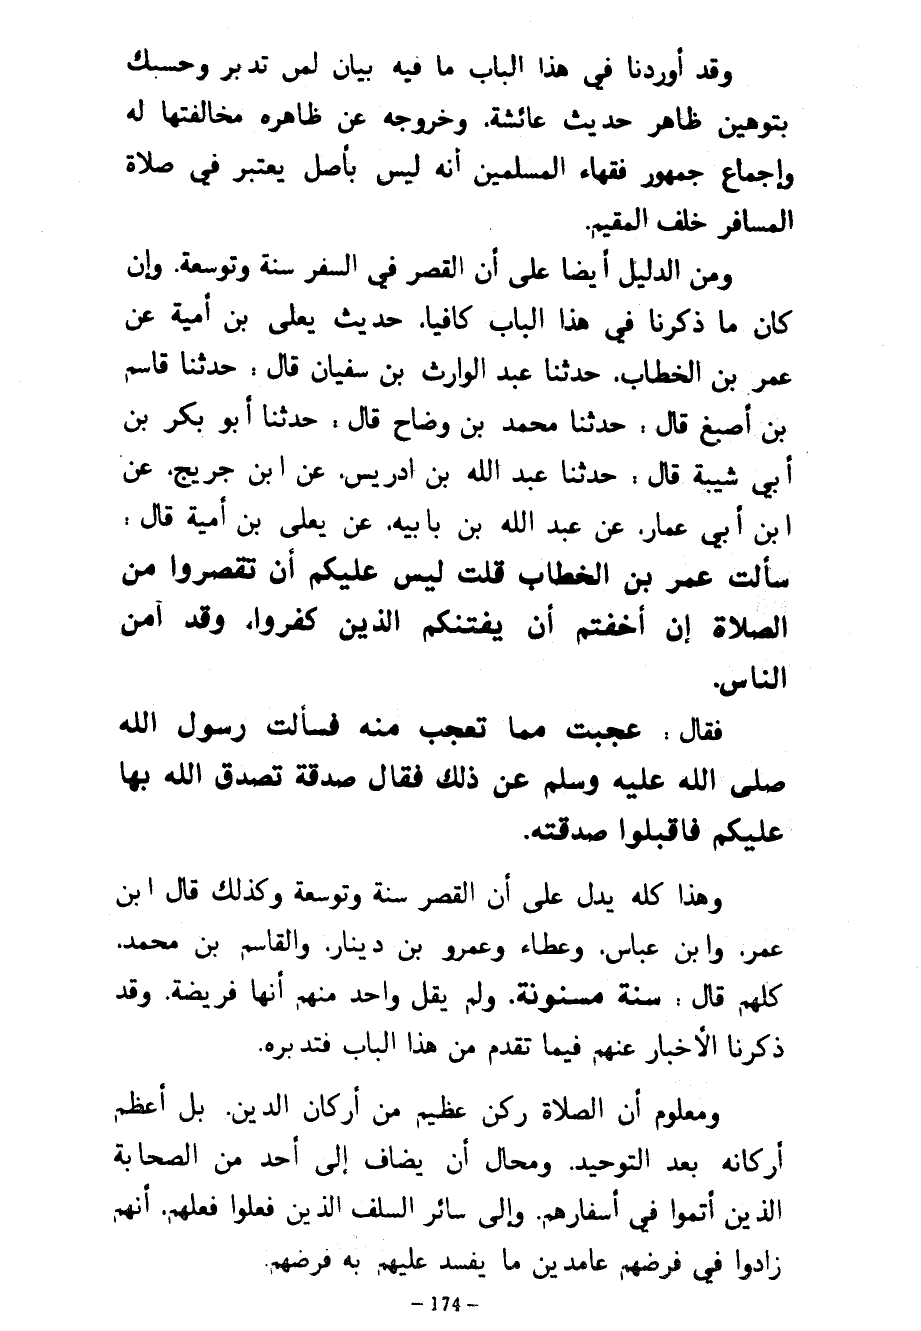 وقد أوردنا في هذا الباب ما فيه بيان لمن تدبر وحسبك
بتوهين ظاهر حديث عائشة، وخروجه عن ظاهره مخالفتها له
وإجماع جمهور فقهاء المسلمين أنه ليس بأصل يعتبر في صلاة
المسافر خلف المقيم.
ومن الدليل أيضا على أن القصر في السفر سنة وتوسعة، وإن
كان ما ذكرنا في هذا الباب كافيا، حديث يعلى بن أمية عن
عمر بن الخطاب، حدثنا عبد الوارث بن سفيان قال : حدثنا قاسم
بن أصبغ قال : حدثنا محمد بن وضاح قال : حدثنا أبو بكر بن
أبي شيبة قال : حدثنا عبد الله بن ادريس، عن ابن جريج، عن
ابن أبي عمار، عن عبد الله بن بابيه، عن يعلى بن أمية قال :
سألت عمر بن الخطاب قلت ليس عليكم أن تقصروا من
الصلاة إن أخفتم أن يفتنكم الذين كفروا، وقد آمن
الناس.
فقال : عجبت مما تعجب منه فسألت رسول الله
صلى الله عليه وسلم عن ذلك فقال صدقة تصدق الله بها
عليكم فاقبلوا صدقته.
وهذا كله يدل على أن القصر سنة وتوسعة وكذلك قال ابن
عمر، وابن عباس، وعطاء وعمرو بن دينار، والقاسم بن محمد،
كلهم قال : سنة مسنونة، ولم يقل واحد منهم أنها فريضة، وقد
ذكرنا الأخبار عنهم فيما تقدم من هذا الباب فتدبره.
ومعلوم أن الصلاة ركن عظيم من أركان الدين، بل أعظم
أركانه بعد التوحيد، ومحال أن يضاف إلى أحد من الصحابة
الذين أتموا في أسفارهم، وإلى سائر السلف الذين فعلوا فعلهم، أنهم
زادوا في فرضهم عامدين ما يفسد عليهم به فرضهم.
– 174 –